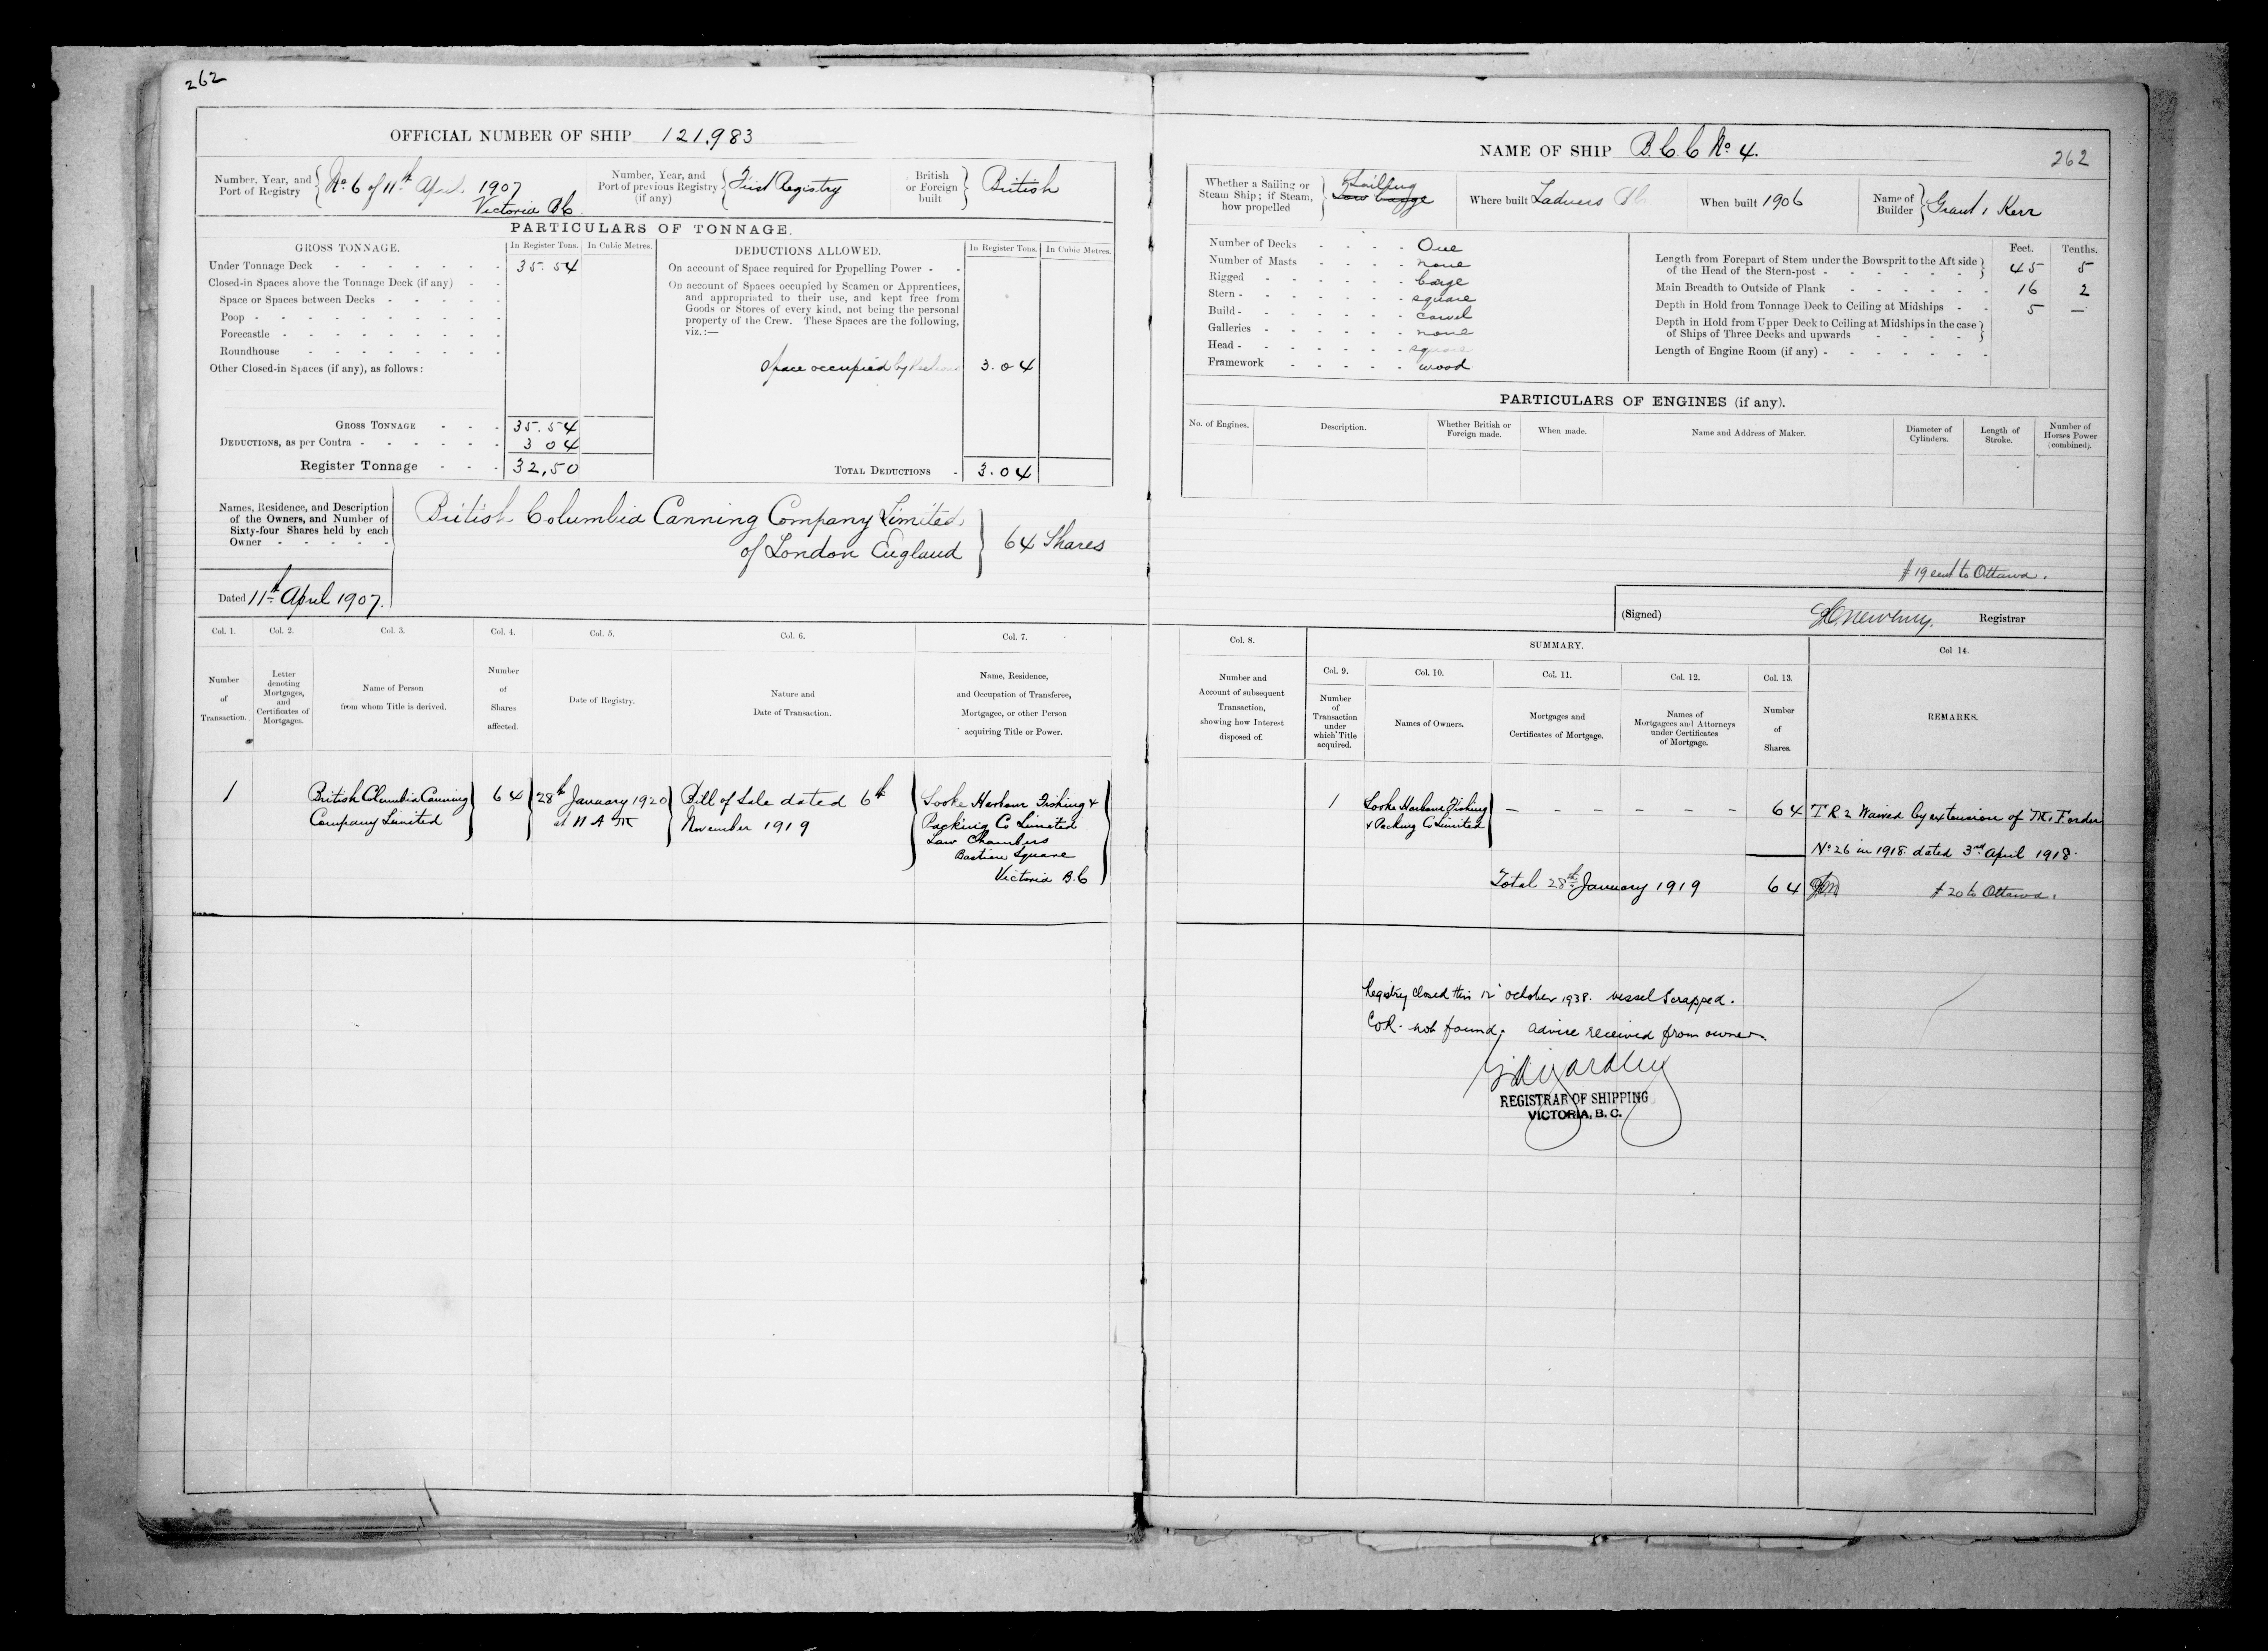 262
OFFICIAL NUMBER OF SHIP 121,983
Number, Year, and Port of Registry No 6 of 11th April 1907 Victoria BC
Number, Year, and Port of previous Registry (if any) First Registry
British or Foreign built British
PARTICULARS OF TONNAGE.
GROSS TONNAGE. In Register Tons. In Cubic Metres.
Under Tonnage Deck 35.54
Closed-in Spaces above the Tonnage Deck (if any)
Space or Spaces between Decks
Poop
Forecastle
Roundhouse
Other Closed-in Spaces (if any), as follows:
GROSS TONNAGE 35.54
DEDUCTIONS, as per Contra 3 04
Register Tonnage 32,50
DEDUCTIONS ALLOWED. In Register Tons. In Cubic Metres.
On account of Space required for Propelling Power
On account of Spaces occupied by Seamen or Apprentices,
and appropriated to their use, and kept free from
Goods or Stores of every kind, not being the personal
property of the Crew. These Spaces are the following,
viz.:—
Space occupied by 3.04
TOTAL DEDUCTIONS 3.04
Names, Residence, and Description
of the Owners, and Number of
Sixty-four Shares held by each
Owner
British Columbia Canning Company Limited
of London England
64 Shares
Dated 11th April 1907.
NAME OF SHIP B.C.C No 4.
262
Whether a Sailing or Steam Ship; if Steam, how propelled Sailing
Where built Ladners BC
When built 1906
Name of Builder Grant, Kerr
Number of Decks One
Number of Masts none
Rigged barge
Stern square
Build carvel
Galleries none
Head square
Framework wood
Feet. Tenths.
Length from Forepart of Stem under the Bowsprit to the Aft side
of the Head of the Stern-post 45 5
Main Breadth to Outside of Plank 16 2
Depth in Hold from Tonnage Deck to Ceiling at Midships 5 —
Depth in Hold from Upper Deck to Ceiling at Midships in the case
of Ships of Three Decks and upwards
Length of Engine Room (if any)
PARTICULARS OF ENGINES (if any).
No. of Engines. Description. Whether British or Foreign made. When made. Name and Address of Maker. Diameter of Cylinders. Length of Stroke. Number of Horses Power (combined).
# 19 sent to Ottawa.
(Signed) Newbury. Registrar
Col. 1. Col. 2. Col. 3. Col. 4. Col. 5. Col. 6. Col. 7.
Number of Transaction.
Letter denoting Mortgages, and Certificates of Mortgages.
Name of Person from whom Title is derived.
Number of Shares affected.
Date of Registry.
Nature and Date of Transaction.
Name, Residence, and Occupation of Transferee, Mortgagee, or other Person acquiring Title or Power.
1
British Columbia Canning
Company Limited
64
28th January 1920
at 11 A M
Bill of Sale dated 6th
November 1919
Sooke Harbour Fishing &
Packing Co Limited
Law Chambers
Bastion Square
Victoria B.C
Col. 8.
Number and Account of subsequent Transaction, showing how Interest disposed of.
SUMMARY.
Col. 9. Col. 10. Col. 11. Col. 12. Col. 13. Col 14.
Number of Transaction under which Title acquired.
Names of Owners.
Mortgages and Certificates of Mortgage.
Names of Mortgagees and Attorneys under Certificates of Mortgage.
Number of Shares.
REMARKS.
1
Sooke Harbour Fishing
& Packing Co Limited
— — — — — —
64
T R 2 Waived by extension of M.F. order
No 26 in 1918 dated 3rd April 1918.
Total 28th January 1919 64
# 20 to Ottawa.
Registry closed this 12 October 1938. vessel scrapped.
C.O.R. not found. Advise received from owner.
REGISTRAR OF SHIPPING
VICTORIA, B. C.